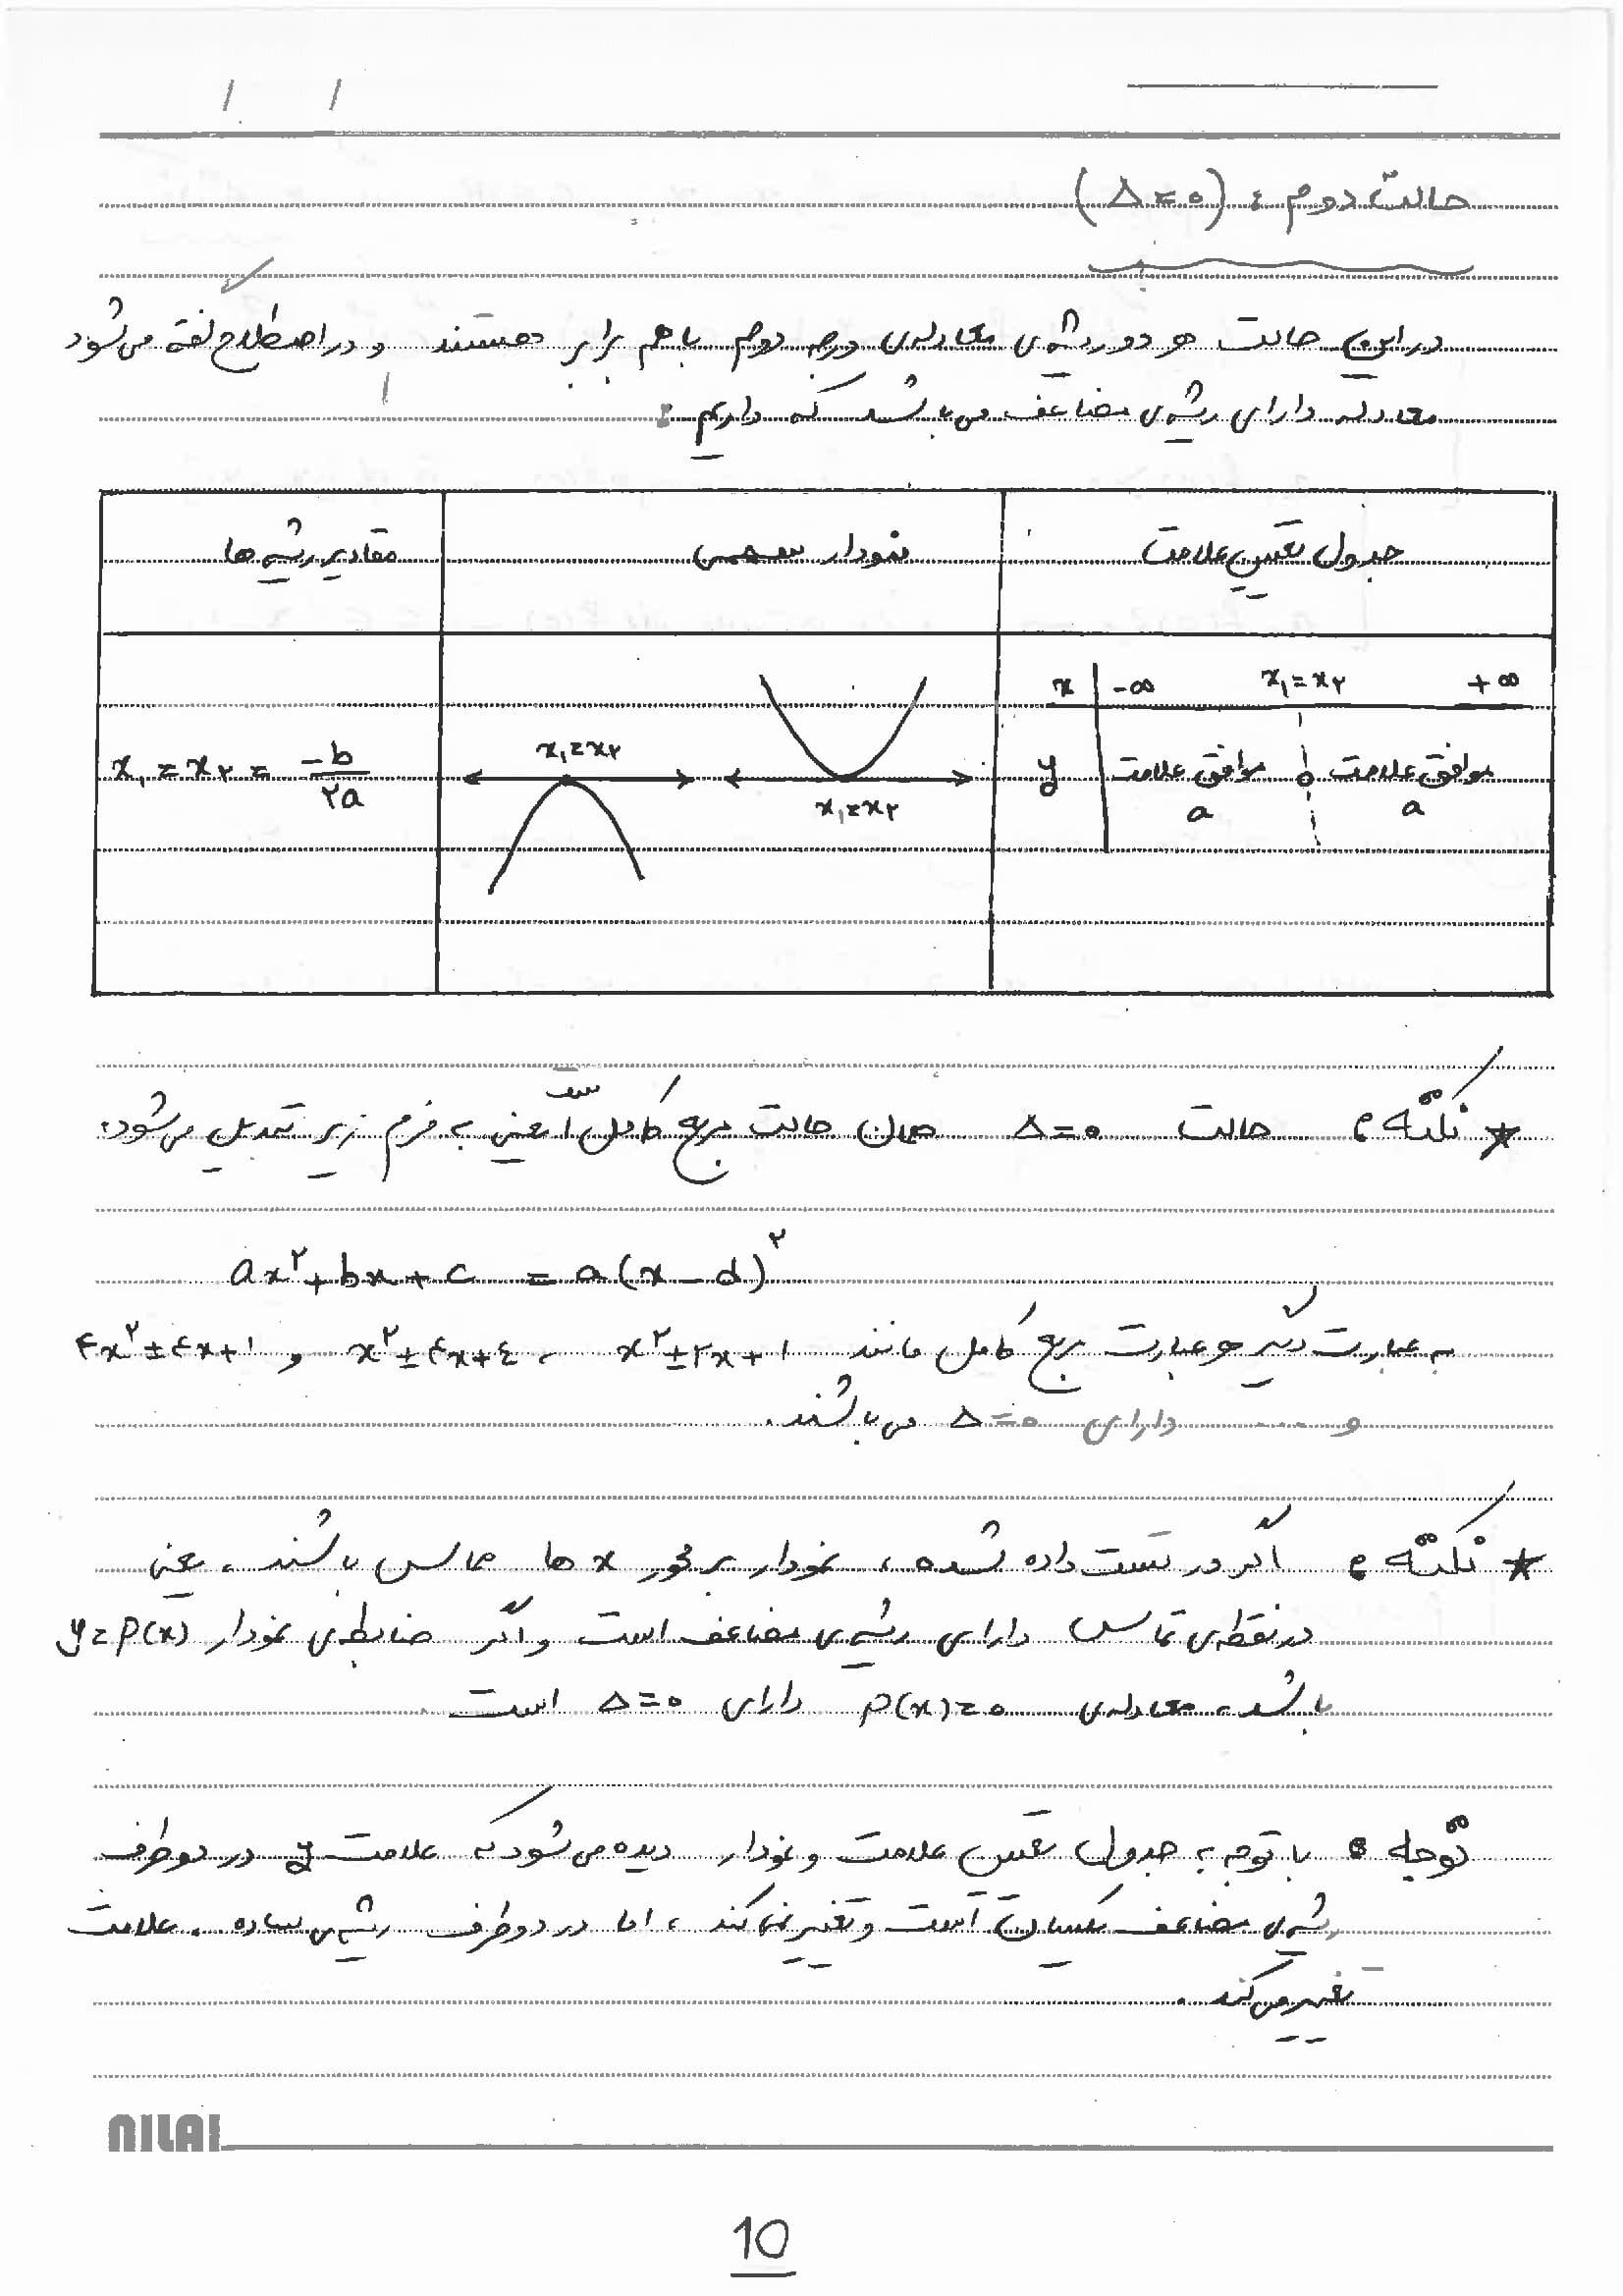 حالت دوم : (Δ=۰)
در این حالت هر دو ریشه‌ی معادله‌ی درجه دوم با هم برابر هستند و در اصطلاح گفته می‌شود
معادله دارای ریشه‌ی مضاعف می‌باشد که داریم :
جدول تعیین علامت نمودار سهمی مقادیر ریشه‌ها
x -∞ x₁=x₂ +∞
y موافق علامت a ۰ موافق علامت a
x₁=x₂
x₁=x₂
x₁=x₂= -b/۲a
★ نکته : حالت Δ=۰ همان حالت مربع کامل است یعنی به فرم زیر تبدیل می‌شود:
ax²+bx+c = a(x-d)²
به عبارت دیگر هر عبارت مربع کامل مانند x²±۲x+۱ ، x²±۴x+۴ و ۴x²±۴x+۱
و .... دارای Δ=۰ می‌باشند.
★ نکته : اگر در تست داده شده ، نمودار بر محور x ها مماس باشند ، یعنی
در نقطه‌ی تماس دارای ریشه‌ی مضاعف است و اگر ضابطه‌ی نمودار y=P(x)
باشد ، معادله‌ی P(x)=۰ دارای Δ=۰ است .
توجه : با توجه به جدول تعیین علامت و نمودار دیده می‌شود که علامت y در دو طرف
ریشه‌ی مضاعف یکسان است و تغییر نمی‌کند ، اما در دو طرف ریشه‌ی ساده ، علامت
تغییر می‌کند .
NILAI
10